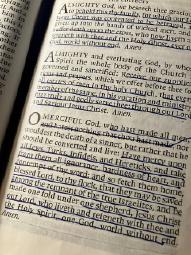 ALMIGHTY God, we beseech thee graci-
to behold this thy family, for which our
Jesus Christ was contented to be betrayed,
given up into the hands of wicked men, and
suffer death upon the cross, who now liveth
reigneth with thee and the Holy Ghost, ever one
God, world without end. Amen.
ALMIGHTY and everlasting God, by whose
Spirit the whole body of the Church is
governed and sanctified; Receive our suppli-
cations and prayers, which we offer before thee for
all estates of men in thy holy Church, that every
member of the same, in his vocation and ministry,
may truly and godly serve thee; through our Lord
and Saviour Jesus Christ. Amen.
O MERCIFUL God, who hast made all men,
and hatest nothing that thou hast made, nor
wouldest the death of a sinner, but rather that he
should be converted and live; Have mercy upon
all Jews, Turks, Infidels, and Hereticks, and take
from them all ignorance, hardness of heart, and
contempt of thy word; and so fetch them home,
blessed Lord, to thy flock, that they may be saved
among the remnant of the true Israelites, and be
made one fold under one shepherd, Jesus Christ
our Lord, who liveth and reigneth with thee and
the Holy Spirit, one God, world without end.
Amen.